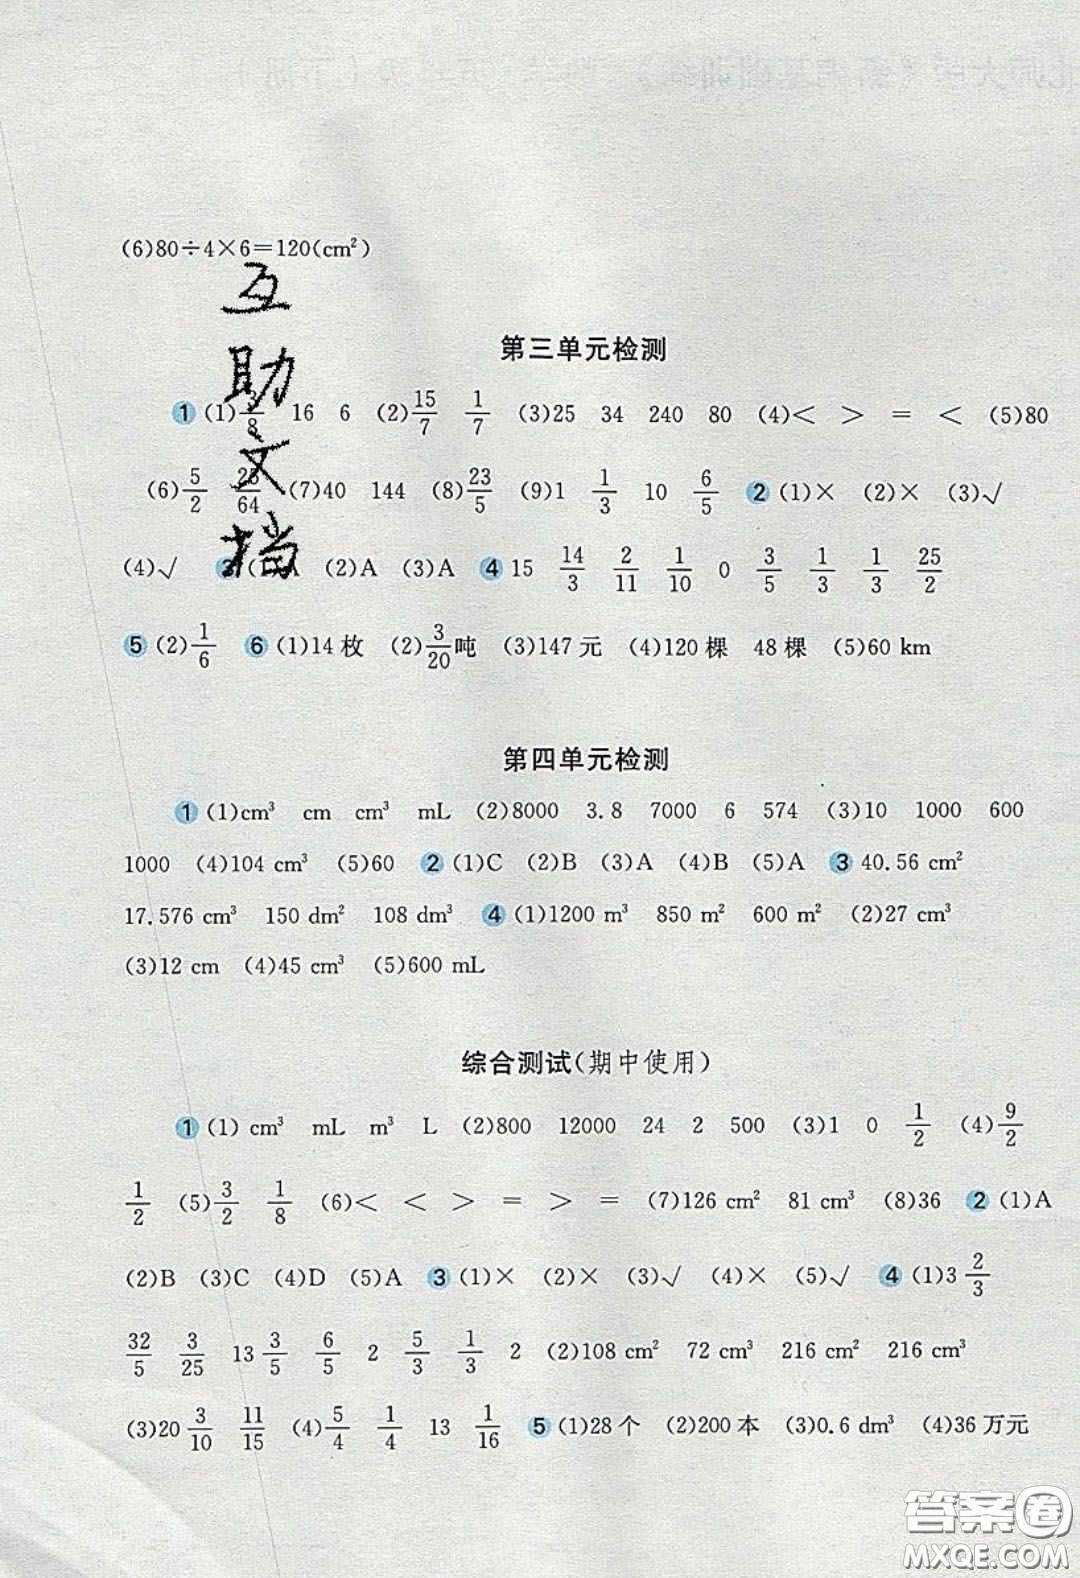 (6)80÷4×6=120(cm²)
互
助
文
档
第三单元检测
1 (1)3/8 16 6 (2)15/7 1/7 (3)25 34 240 80 (4)< > = < (5)80
(6)5/2 25/64 (7)40 144 (8)23/5 (9)1 1/3 10 6/5 2 (1)× (2)× (3)√
(4)√ 3 A (2)A (3)A 4 15 14/3 2/11 1/10 0 3/5 1/3 1/3 25/2
5 (2)1/6 6 (1)14枚 (2)3/20吨 (3)147元 (4)120棵 48棵 (5)60 km
第四单元检测
1 (1)cm³ cm cm³ mL (2)8000 3.8 7000 6 574 (3)10 1000 600
1000 (4)104 cm³ (5)60 2 (1)C (2)B (3)A (4)B (5)A 3 40.56 cm²
17.576 cm³ 150 dm² 108 dm³ 4 (1)1200 m³ 850 m² 600 m² (2)27 cm³
(3)12 cm (4)45 cm³ (5)600 mL
综合测试(期中使用)
1 (1) cm³ mL m³ L (2)800 12000 24 2 500 (3)1 0 1/2 (4)9/2
1/2 (5)3/2 1/8 (6)< < > = > = (7)126 cm² 81 cm³ (8)36 2 (1)A
(2)B (3)C (4)D (5)A 3 (1)× (2)× (3)√ (4)× (5)√ 4 (1)3 2/3
32/5 3/25 13 3/5 6/5 2 5/3 1/3 2 (2)108 cm² 72 cm³ 216 cm² 216 cm³
(3)20 3/10 11/15 (4)5/4 1/4 13 1/16 5 (1)28个 (2)200本 (3)0.6 dm³ (4)36万元
答案卷
MXQE.COM